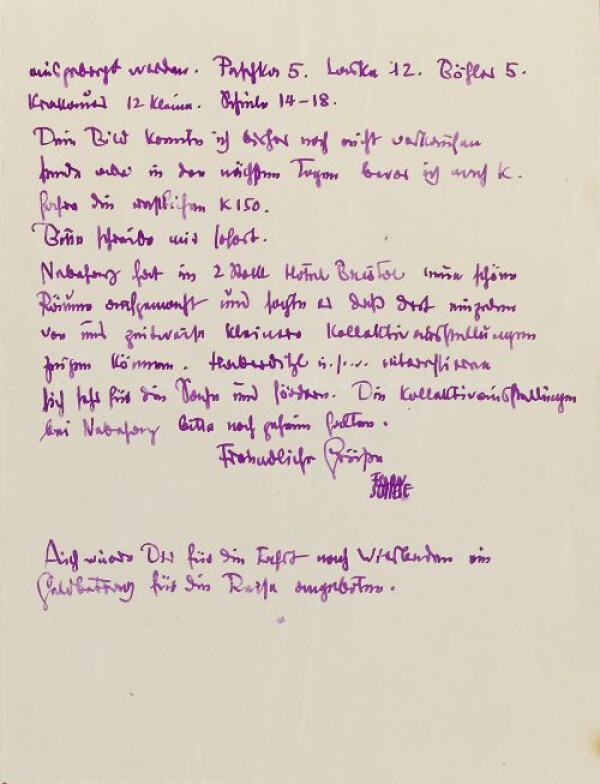 ausgeborgt werden. Paschka 5. Laske 12. Böhler 5.
Krakauer 12 kleine. Schiele 14–18.
Dein Bild konnte ich bisher noch nicht verkaufen
in den nächsten Tagen bevor ich nach K.
fahre die restlichen K 150.
Bitte schreibe mir sofort.
Nebehay hat im 2 Stock Hotel Bristol neue schöne
Räume und sagte er daß dort
von uns zeitweise kleinere Kollektivausstellungen
zeigen können. Haberditzl u.s.w. interessieren
sich sehr für die Sache und fördern. Die Kollektivausstellungen
bei Nebehay bitte noch geheim halten.
Freundliche Grüße
Auch wurde Dir für die Fahrt nach Wiesbaden ein
Geldbetrag für die Reise angeboten.